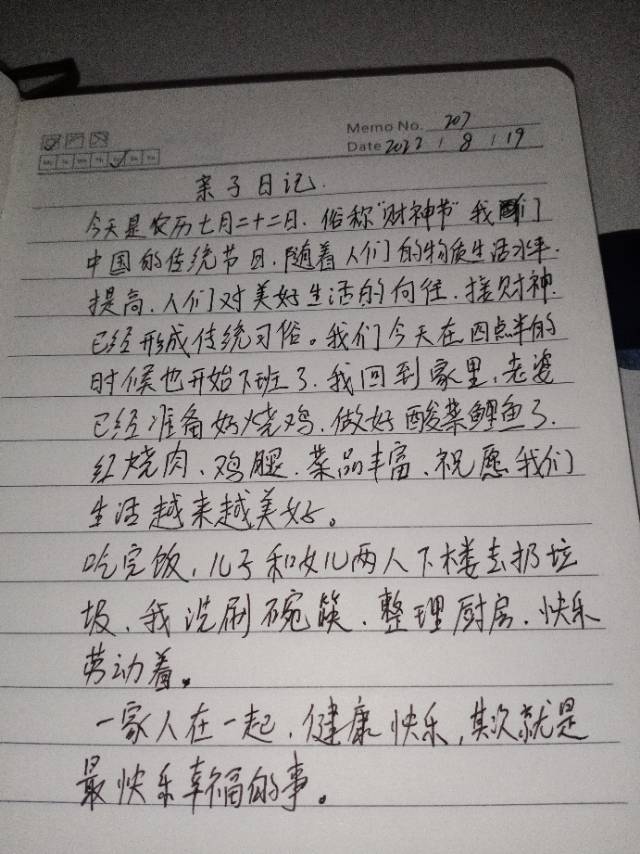 Memo No. 207
Date 2022 / 8 / 19
亲子日记.
今天是农历七月二十二日、俗称"财神节"我们
中国的传统节日、随着人们的物质生活水平.
提高、人们对美好生活的向往、接财神.
已经形成传统习俗。我们今天在四点半的
时候也开始下班了、我回到家里、老婆
已经准备好烧鸡、做好酸菜鲤鱼了.
红烧肉、鸡腿、菜品丰富、祝愿我们
生活越来越美好。
吃完饭、儿子和女儿两人下楼去扔垃
圾、我洗刷碗筷、整理厨房、快乐
劳动着。
一家人在一起、健康快乐,其次就是
最快乐幸福的事。